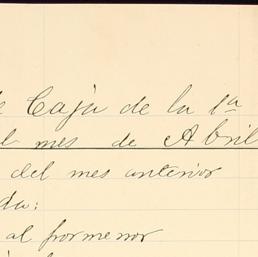 e Caja de la 1a
l mes de Abril
del mes anterior
da:
al pormenor